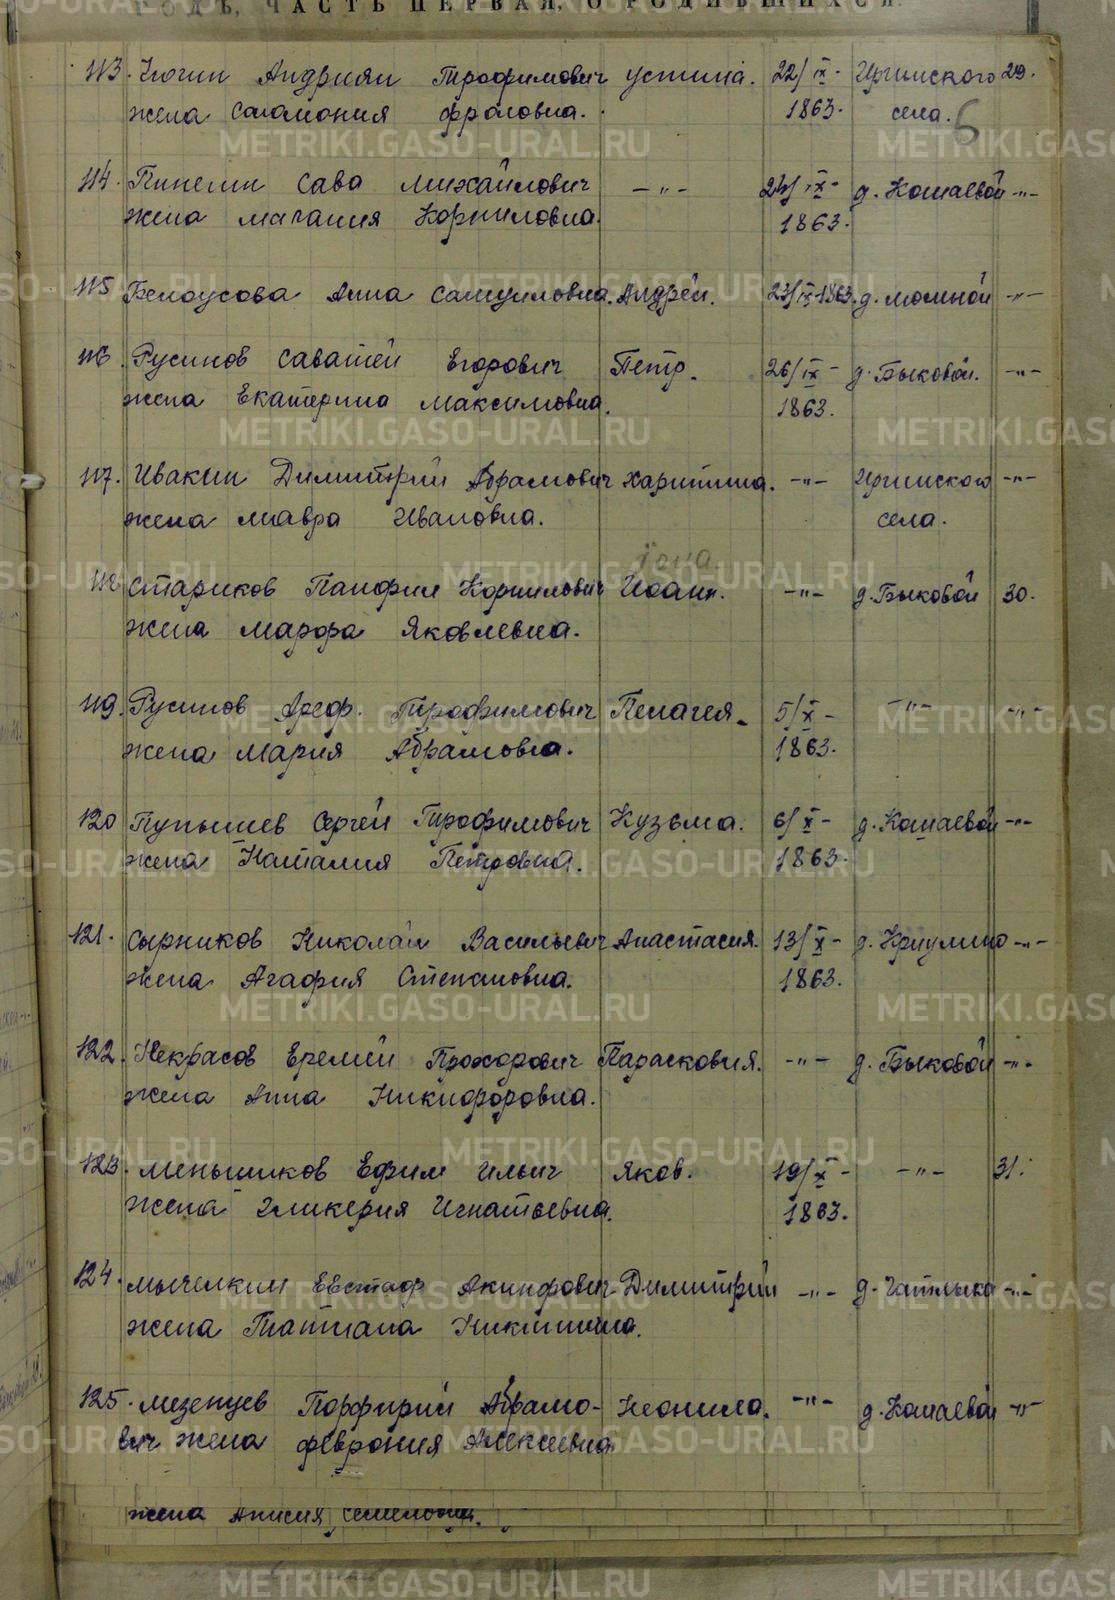 ЧАСТЬ ПЕРВАЯ, О РОДИВШИХСЯ.
113. Андриян Трофимович Устина. 22/IX- Иргинского 29.
жена Саламония Фроловна. 1863. села. 6
114. Пинегин Сава Михайлович -"- 24/IX- д. Кошаевой -"-
жена Магания Корниловна. 1863.
115 Белоусова Анна Самуиловна. Андрей. 23/IX-1863. д. -"-
116. Русинов Саватей Егорович Петр. 26/IX- д. Быковой. -"-
жена Екатерина Максимовна. 1863.
117. Ивакин Димитрий Абрамович Харитина. -"- Иргинского -"-
жена Мавра Ивановна. села.
118 Стариков Панфил Корнилович Иоанн. -"- д. Быковой 30.
жена Марфа Яковлевна.
119. Русинов Ареф. Трофимович Пелагея. 5/X- -"- -"-
жена Мария Абрамовна. 1863.
120 Пупышев Сергей Трофимович Кузьма. 6/X- д. Кошаевой -"-
жена Наталия Петровна. 1863.
121. Сырников Николай Васильевич Анастасия. 13/X- д. Криулино -"-
жена Агафия Степановна. 1863.
122. Некрасов Еремей Прохорович Парасковия. -"- д. Быковой -"-
жена Анна Никифоровна.
123. Меньшиков Ефим Ильич Яков. 19/X- -"- 31.
жена Гликерия Игнатьевна. 1863.
124. Мычелкин Евстаф Акинфович Димитрий -"- д. Чатлыка -"-
жена Татиана Никитина.
125. Мезенцев Порфирий Абрамо- Неонила. -"- д. Кошаевой -"-
вич жена Феврония Алексеевна
жена Анисия
METRIKI.GASO-URAL.RU